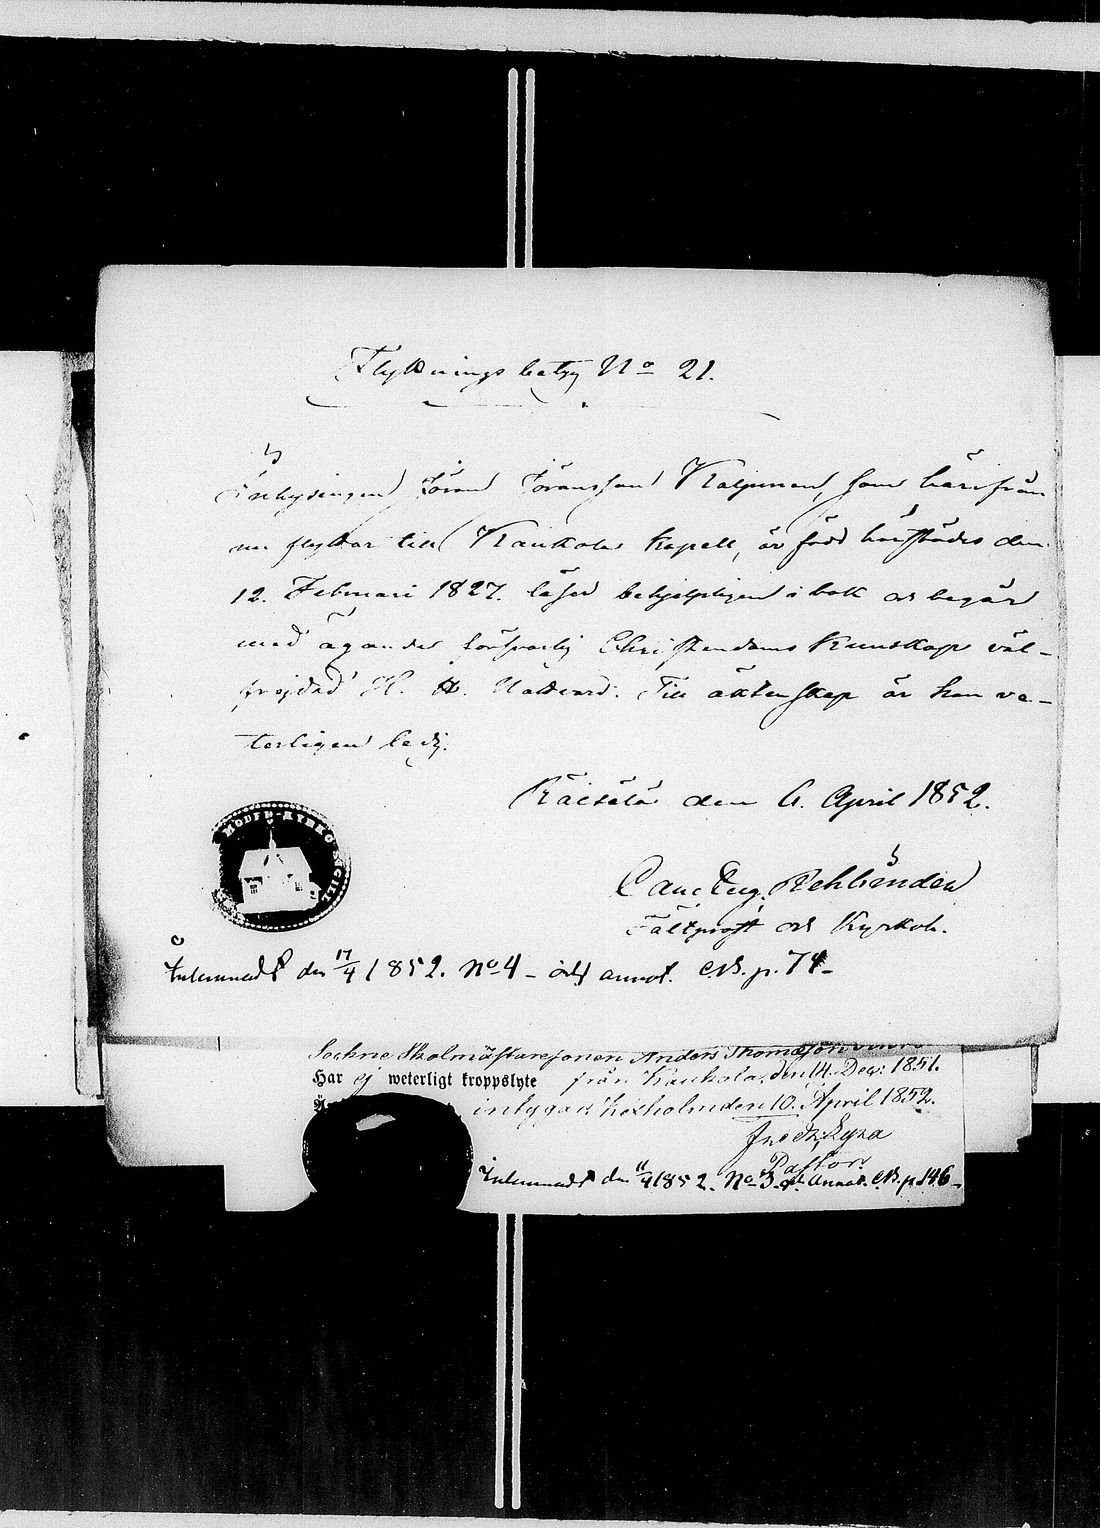 Flyttnings betyg No 21.
Inhysingen Jöran Göransson Kaljunen, som härifrån
nu flyttar till Kaukola Kapell, är född härstädes den
12. Februari 1827. läser behjelpligen i bok och begår
med ägande försvarlig Christendoms Kunskap väl-
frejdad H. H. Nattvard. Till äktenskap är han ve-
terligen ledig.
Räisälä den 6. April 1852.
MODER-KYRKO SIGILL
Carl Aug. Rehbinder
Fältprost och Kyrkoh.
Inlemnadt den 17/4 1852. No 4 - och annot. CB. p. 74-
Sockne Skolmästaresonen Anders Thomasson
Har ej weterligt kroppslyte från Kaukola, den 14. Dec: 1851.
intygar Kexholm den 10. April 1852.
Pastor.
Inlemnadt den 11/4 1852. No 3. och Annot. CB. p. 146-